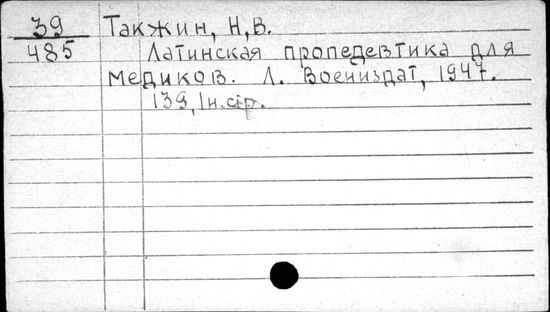 39 Такжин, Н,В.
485 Латинская пропедевтика для
медиков. Л. Воениздат, 1947.
139, 1н.стр.